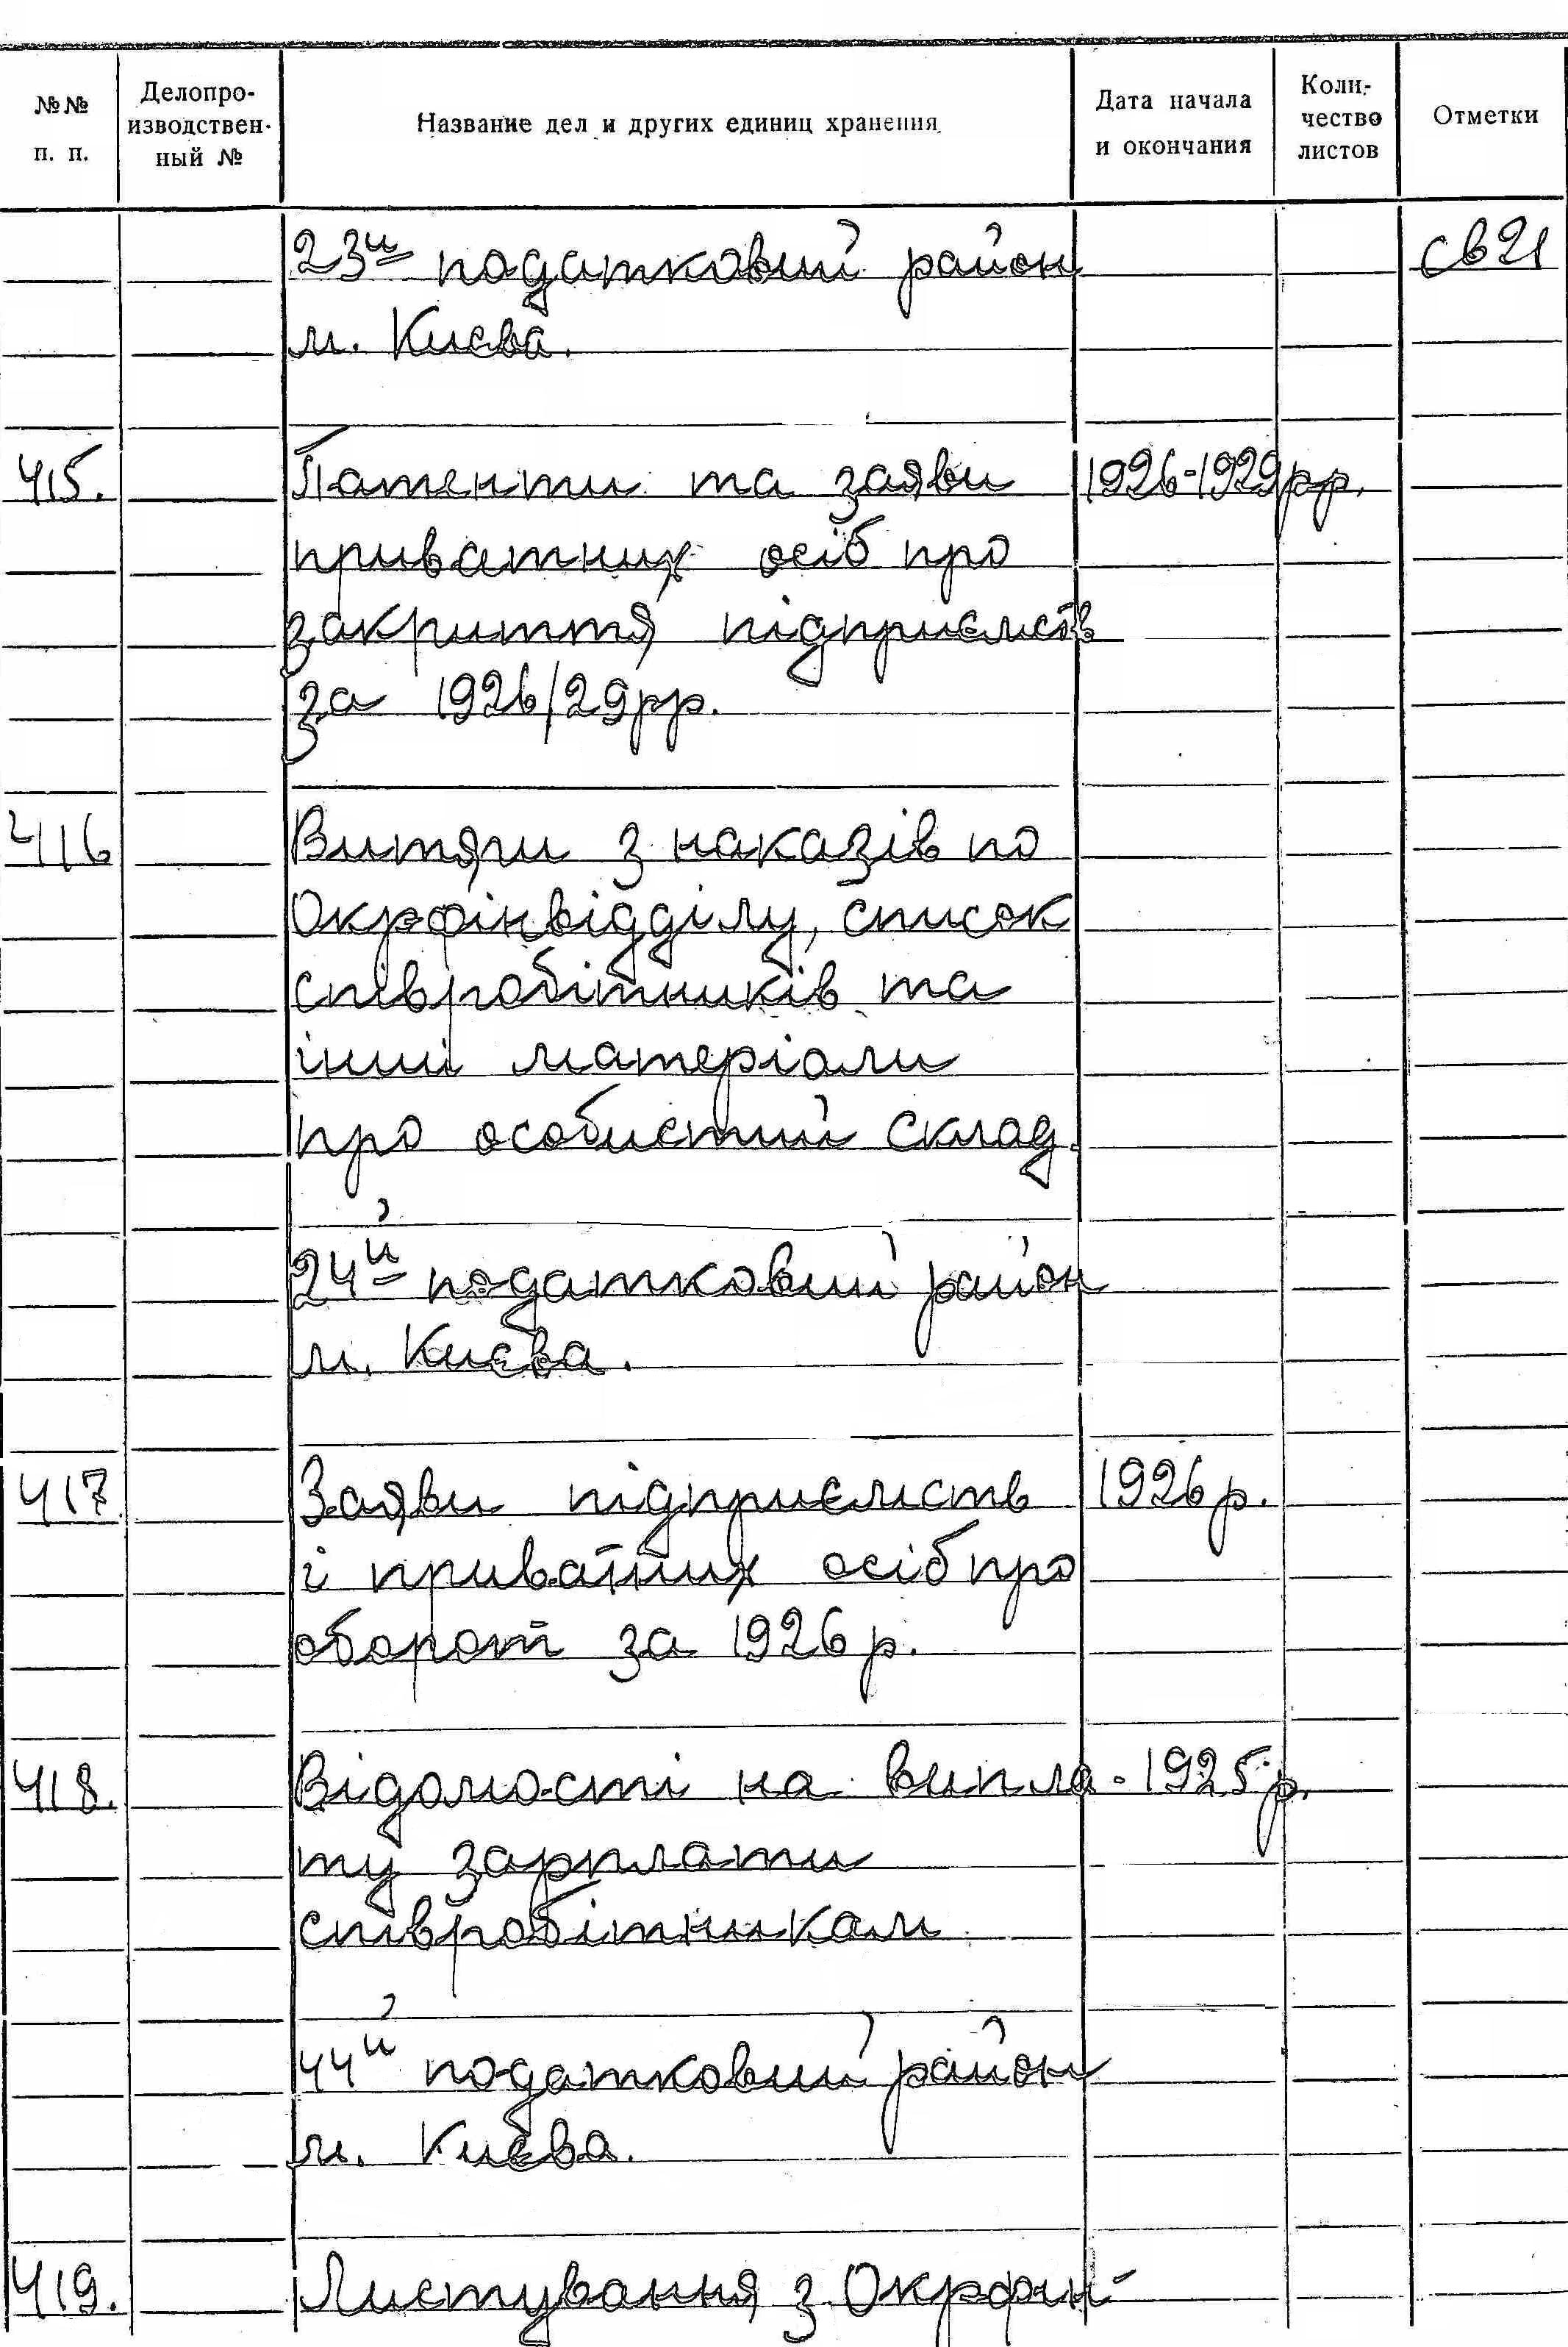 №№ п. п.
Делопро-
изводствен-
ный №
Название дел и других единиц хранения
Дата начала
и окончания
Коли-
чество
листов
Отметки
23й податковий район св21
м. Києва.
415. Патенти та заяви 1926-1929рр.
приватних осіб про
закриття підприємств
за 1926/29рр.
416 Витяги з наказів по
Окрфінвідділу, список
співробітників та
інші матеріали
про особистий склад.
24й податковий район
м. Києва.
417. Заяви підприємств 1926р.
і приватних осіб про
оборот за 1926р.
418. Відомості на випла- 1925р.
ту зарплати
співробітникам
44й податковий район
м. Києва.
419. Листування з Окрфін-